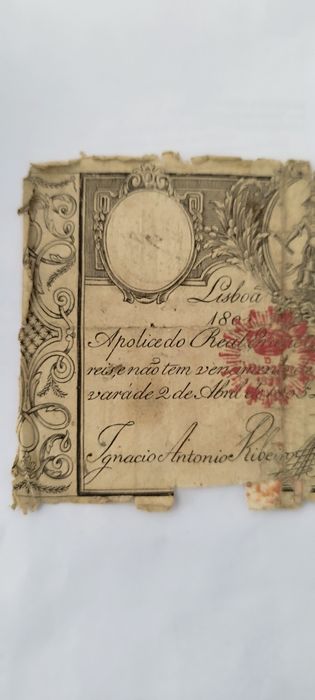 Lisboa
180
Apolice do Real
reis e não tem vencimento
vará de 2 de Abril de 1805
Ignacio Antonio Ribeiro